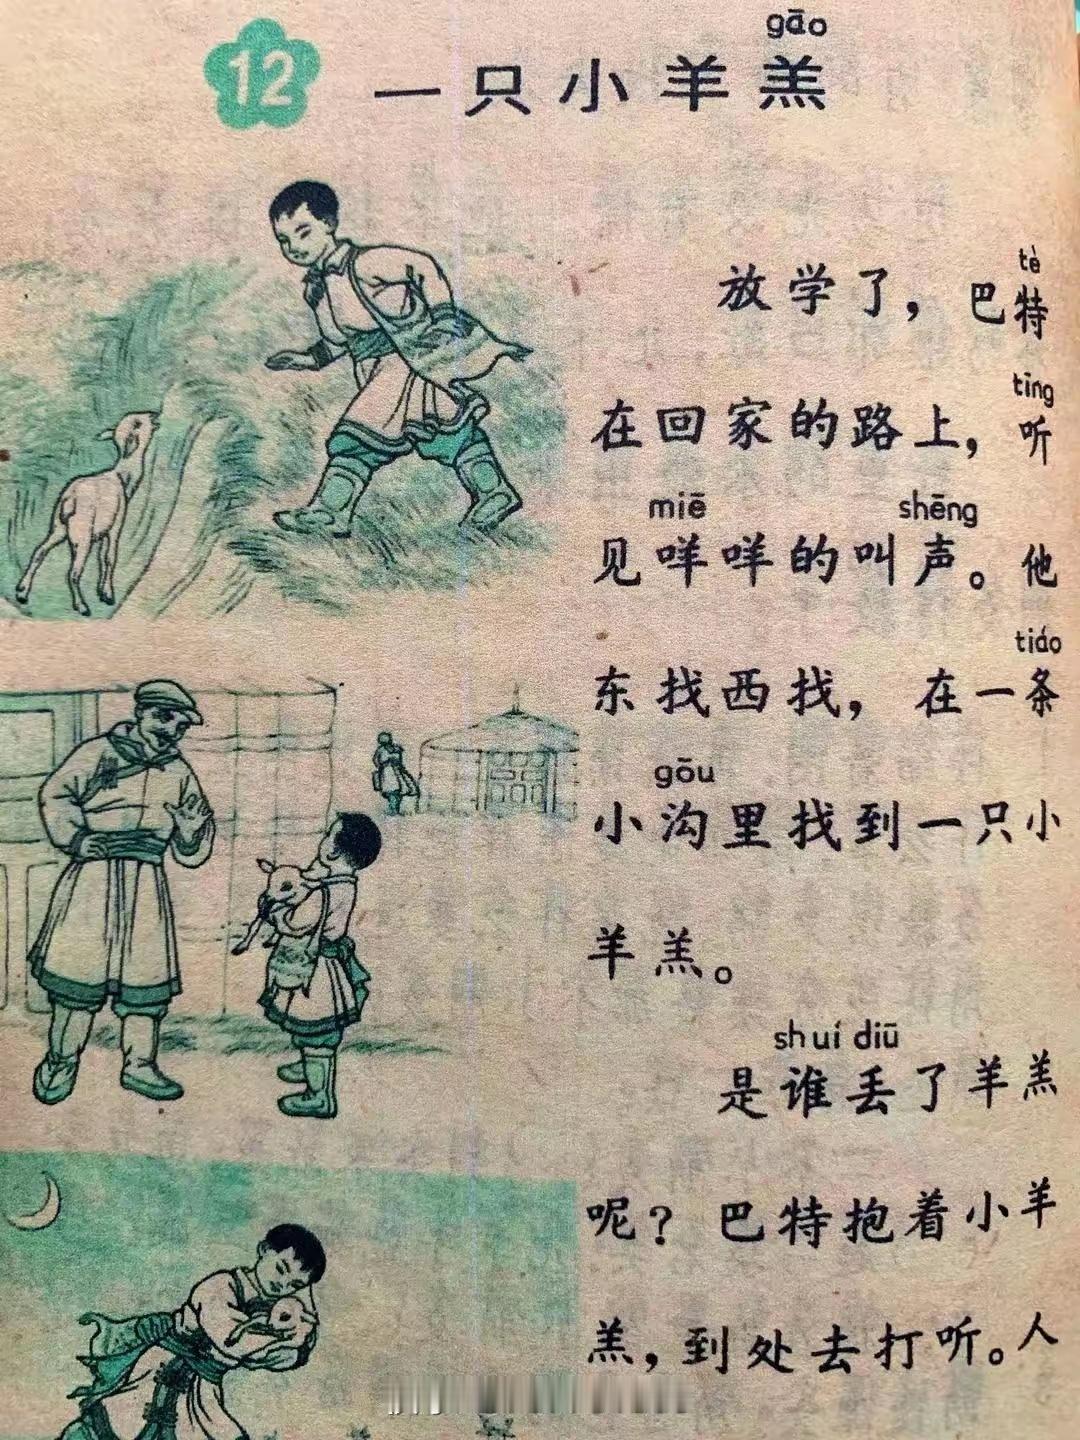 12 一只小羊羔
gāo
放学了，巴特
tè
在回家的路上，听
tīng
见咩咩的叫声。他
miē shēng
东找西找，在一条
tiáo
小沟里找到一只小
gōu
羊羔。
是谁丢了羊羔
shuí diū
呢？巴特抱着小羊
羔，到处去打听。人